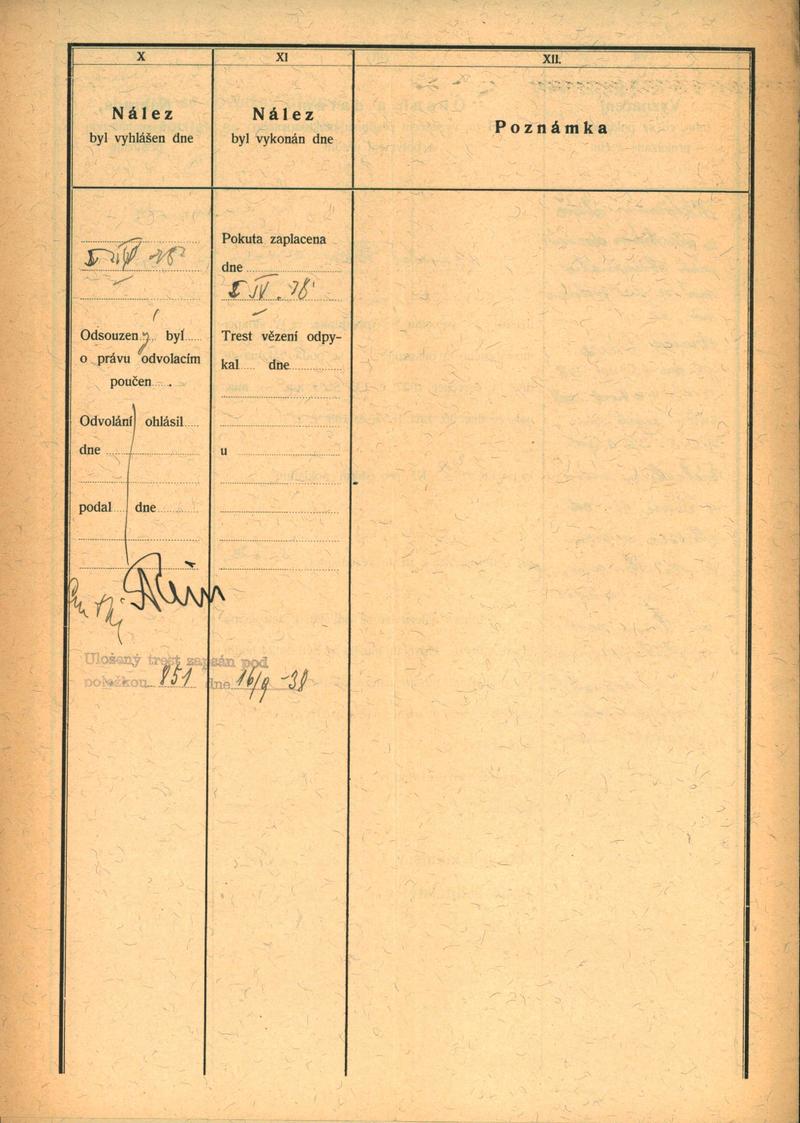 X
Nález
byl vyhlášen dne
Odsouzený byl
o právu odvolacím
poučen
Odvolání ohlásil
dne
podal dne
Uložený trest zapsán pod
položkou 851 dne 16/9 -38
XI
Nález
byl vykonán dne
Pokuta zaplacena
dne
Trest vězení odpy-
kal dne
u
XII.
Poznámka